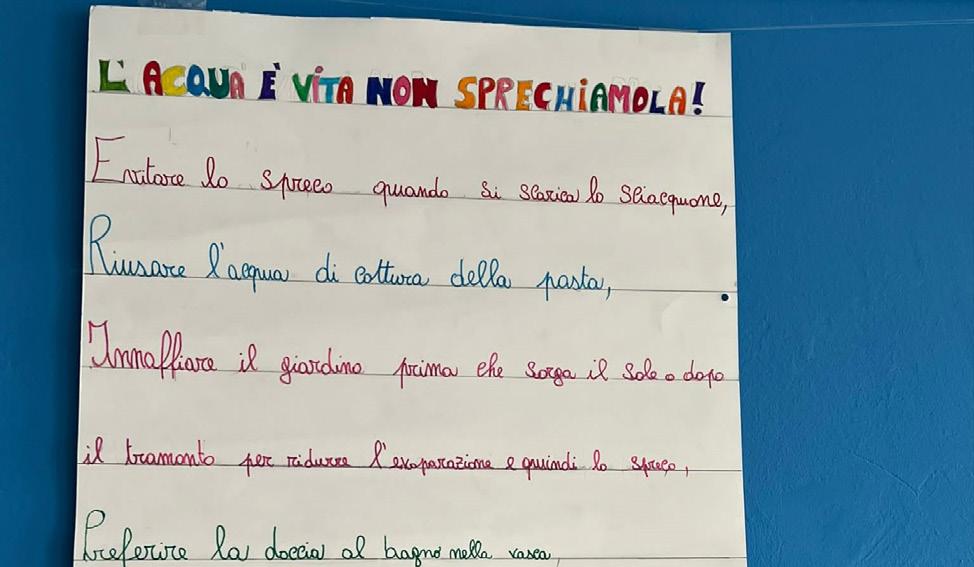 L'ACQUA È VITA NON SPRECHIAMOLA!
Evitare lo spreco quando si scarica lo sciacquone,
Riusare l'acqua di cottura della pasta,
Innaffiare il giardino prima che sorga il sole o dopo
il tramonto per ridurre l'evaporazione e quindi lo spreco,
Preferire la doccia al bagno nella vasca,